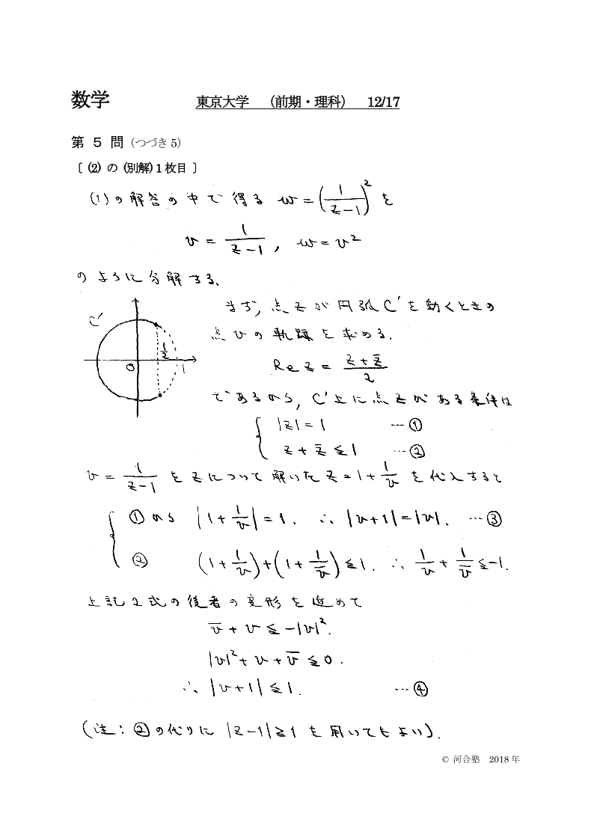 数学 東京大学 (前期・理科) 12/17
第 5 問 (つづき 5)
〔 (2) の (別解) 1 枚目 〕
(1)の解答の中で得る w = (1/(z-1))² を
v = 1/(z-1), w = v²
のように分解する.
C'
O
1/2
1
まず, 点zが円弧C'を動くときの
点vの軌跡を求める.
Re z = (z+z̅)/2
であるから, C'上に点zがある条件は
{ |z|=1 …①
z+z̅≦1 …②
v = 1/(z-1) をzについて解いたz=1+1/v を代入すると
{ ①から |1+1/v|=1. ∴ |v+1|=|v|. …③
② (1+1/v)+(1+1/v̅)≦1. ∴ 1/v+1/v̅≦-1.
上記2式の後者の変形を進めて
v̅+v≦-|v|².
|v|²+v+v̅≦0.
∴ |v+1|≦1. …④
(注:②の代りに |z-1|≧1 を用いてもよい).
© 河合塾 2018 年